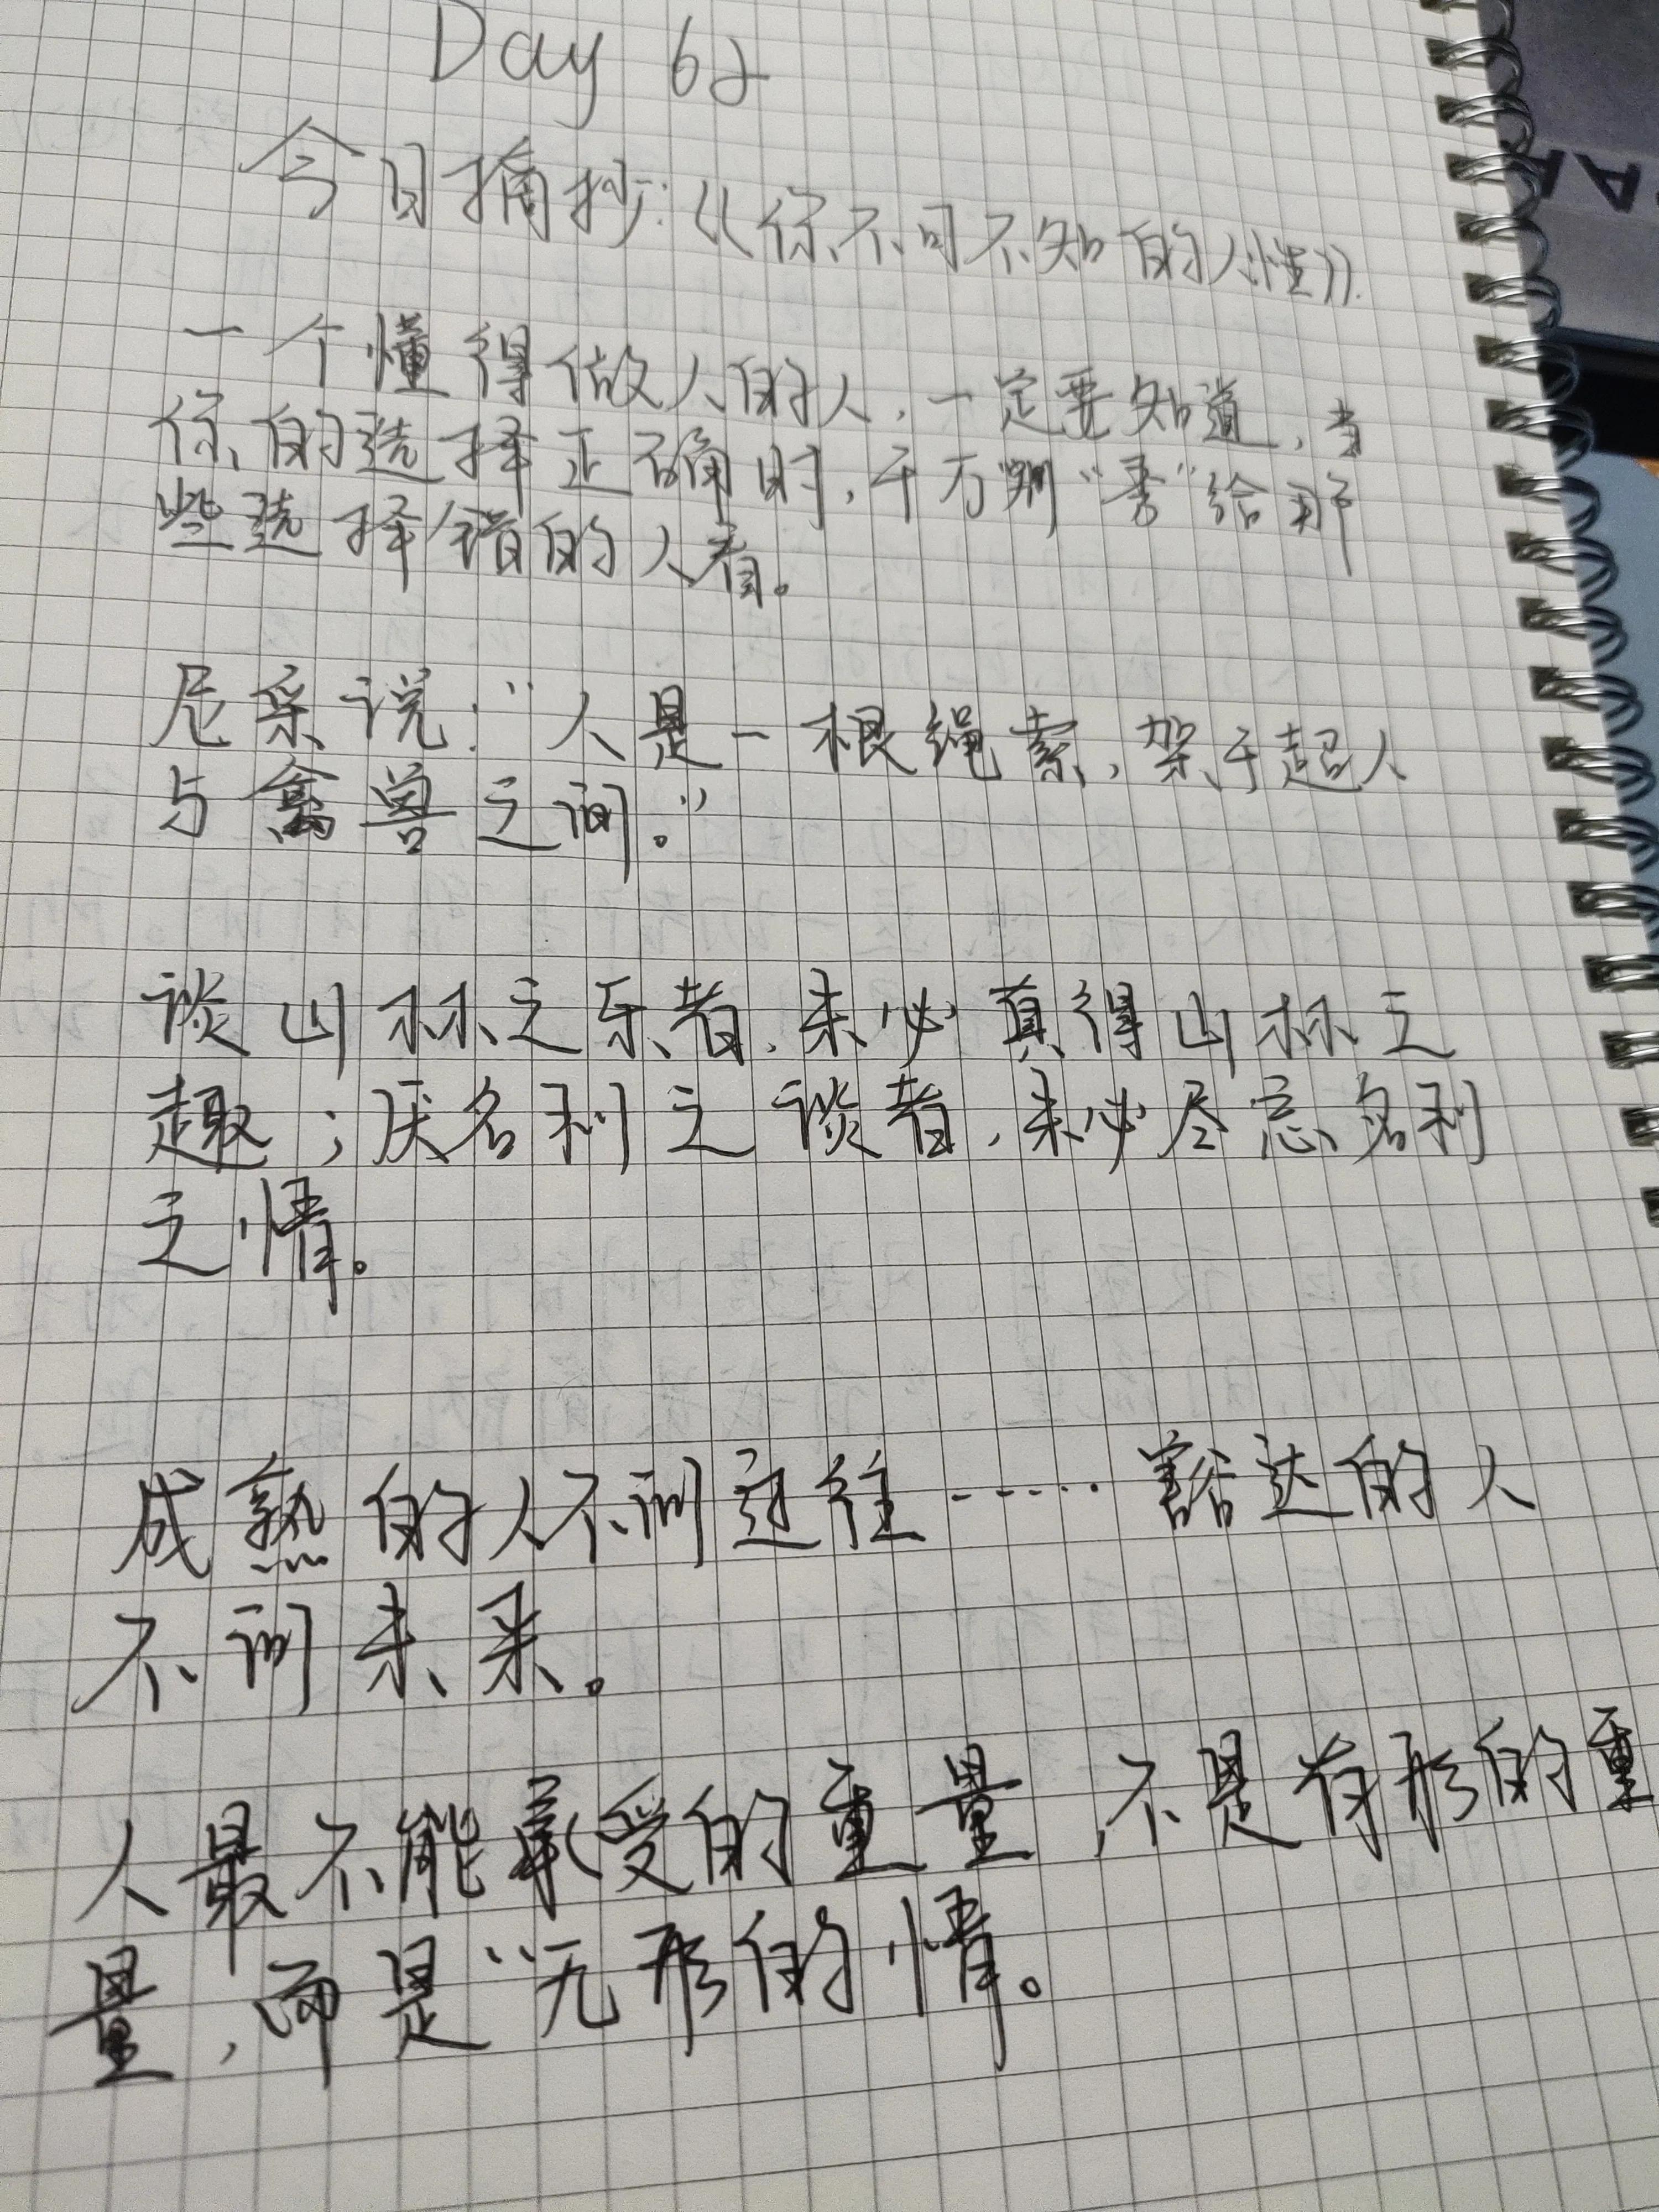 Day 62
今日摘抄:《你不可不知的人性》.
一个懂得做人的人,一定要知道,当
你的选择正确时,千万别“秀”给那
些选择错的人看。
尼采说:“人是一根绳索,架于超人
与禽兽之间。”
谈山林之乐者,未必真得山林之
趣;厌名利之谈者,未必尽忘名利
之情。
成熟的人不问过往······豁达的人
不问未来。
人最不能承受的重量,不是有形的重
量,而是“无形的情。